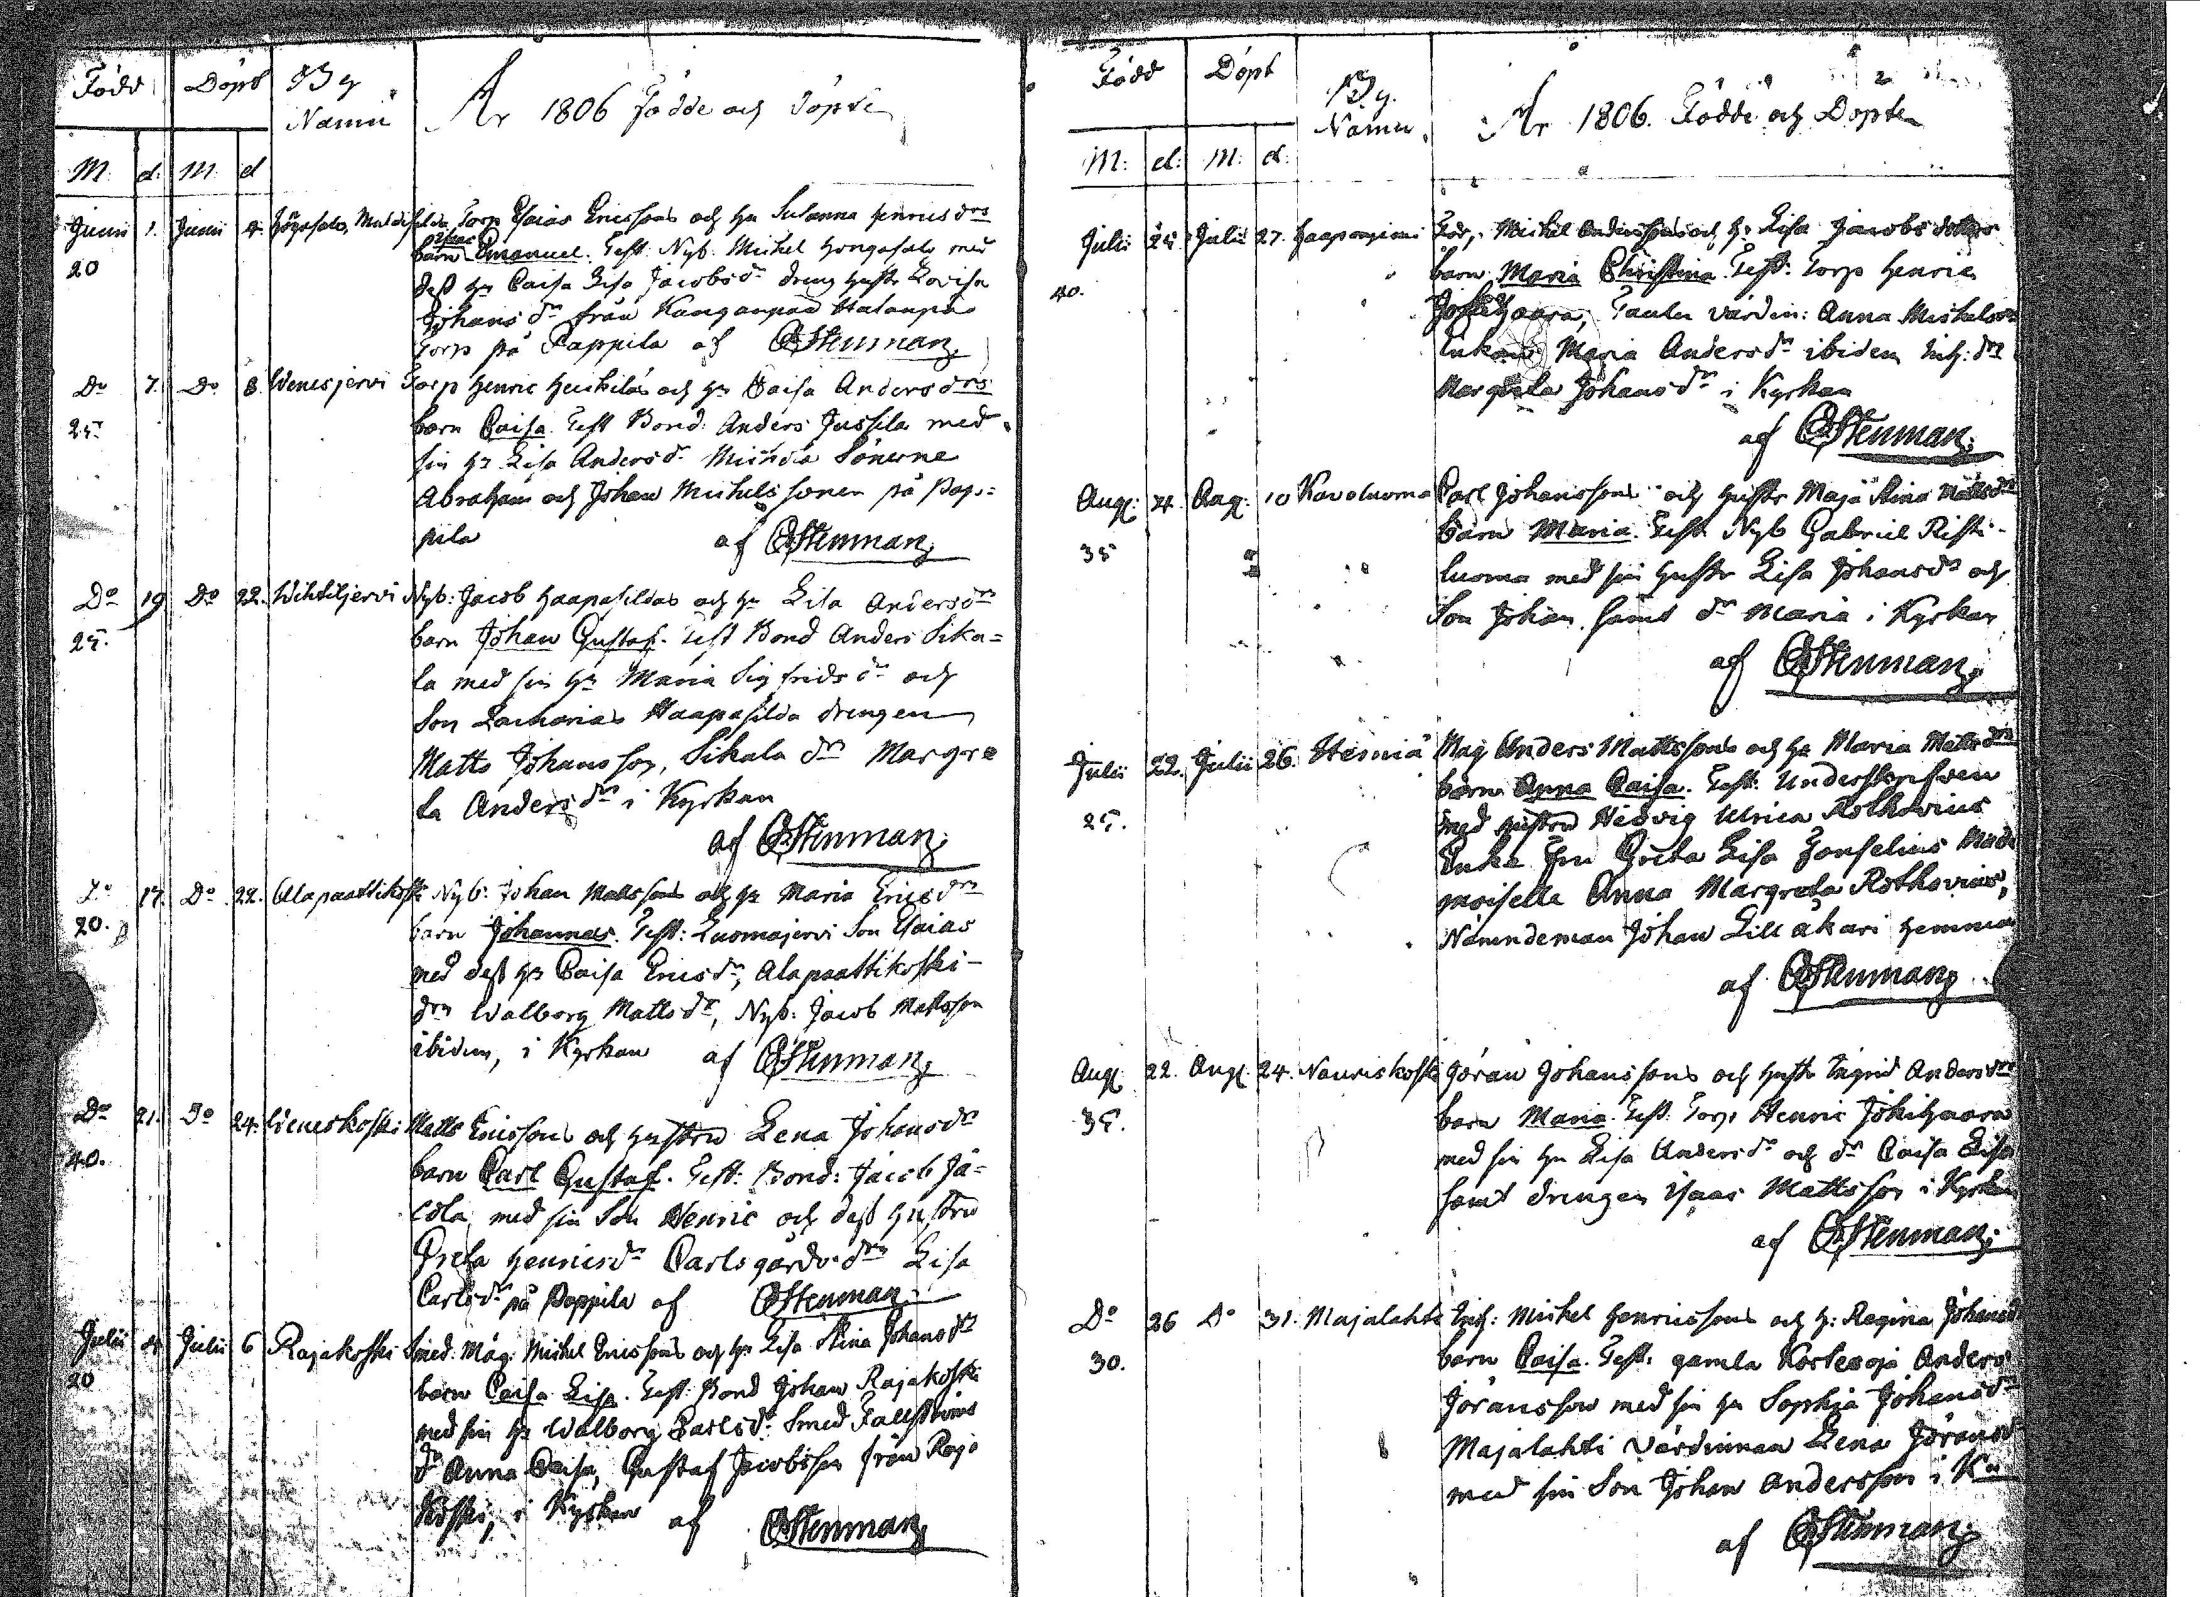 Född Döpt By Namn År 1806 Födde och Döpte
M. d. M. d
Junii 1. Junii 4. Torp Esaias Ericssons och hu Susanna Henricsdrs
20 barn Emanuel. Test. Nyb. Michel Hongasalo med
dess hu Caisa Lisa Jacobsdr dreng hustr Lovisa
Johansdr från Kanganpää
Torp på Pappila af CStenman
Do 7. Do 8. Wenesjervi Torp Henric Heickiläs och hu Caisa Andersdrs
25 barn Caisa. Test Bond. Anders Jussila med
sin hu Lisa Andersdr Sönerne
Abraham och Johan Michelssoner på Pap=
pila af CStenman
Do 19 Do 22. Wihteljervi Nyb: Jacob Haapasildas och hu Lisa Andersdrs
25. barn Johan Gustaf. Test Bond Anders Sika=
la med sin hu Maria Sigfridsdr och
Son Zacharias Haapasilda drengen
Matts Johansson, Sikala dr Margre
ta Andersdr i Kyrkan
af CStenman
Do 17. Do 22. Alapaattikoski Nyb: Johan Mattssons och hu Maria Ericsdrs
20. barn Johannes. Test: Luomajervi Son Esaias
med dess hu Caisa Ericsdr, Alapaattikoski-
drn Walborg Mattsdr, Nyb: Jacob Mattsson
ibidem, i Kyrkan af CStenman
Do 21. Do 24. Weneskoski Matts Ericssons och hustru Lena Johansdrs
40. barn Carl Gustaf. Test: Bond: Jacob Ja=
cola med sin Son Henric och dess hustru
Greta Henricsdr Carlsgårds drn Lisa
Carlsdr på Pappila af CStenman
Julii 4. Julii 6 Rajakoski Smed: Måg: Michel Ericssons och hu Lisa Stina Johansdrs
20 barn Caisa Lisa. Test: Bond Johan Rajakoski
med sin hu Walborg Carlsdr. Smed Fallströms
dr Anna Caisa, Gustaf Jacobsson från Raja
koski, i Kyrkan af CStenman
Född Döpt By. Namn År 1806. Födde och Döpte
M: d: M: d:
Julii 25 Julii 27. Haapaniemi Michel Anderssons och hu Lisa Jacobs dotters
40. barn Maria Christina. Test: Torp Henric
värdin: Anna Michelsdr
Enkan Maria Andersdr ibidem Inh: drn
Margreta Johansdr i Kyrkan
af CStenman
Aug: 4. Aug: 10 Kavoluoma Carl Johanssons och hustr Maja Stina Mattsdrs
35 barn Maria. Test Nyb Gabriel Risti-
luoma med sin hustr Lisa Johansdr och
Son Johan samt dr Maria i Kyrkan
af CStenman
Julii 22. Julii 26. Heiniä Måg Anders Mattssons och hu Maria Mattsdrs
25. barn Anna Caisa. Test: Under
med hustru Hedvig Ulrica Rothovius
Enke Fru Greta Lisa Forselius Made
moiselle Anna Margreta Rothovius,
Nämndeman Johan Lill åkari hemma
af CStenman
Aug: 22. Aug: 24. Nauriskoski Göran Johanssons och hustr Ingrid Andersdrs
35. barn Maria. Test: Torp Henric Jåkihaara
med sin hu Lisa Andersdr och dr Caisa Lisa
samt drengen Isaac Mattsson i Kyrkan
af CStenman
Do 26 Do 31. Majalahti Inh: Michel Henricssons och h: Regina Johansd
30. barn Caisa. Test: gamla Kortesoja Anders
Jöransson med sin hu Sophia Johansdr
Majalahti värdinnan Lena Jöransd
med sin Son Johan Andersson i K
af CStenman